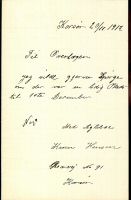 Korsør 20/11 1912
Til Overlægen
jeg vilde gjerne spørge
om der var en ledig Plads
til 1ste December
Med Agtelse
Karen Hansen
No 91
Korsør